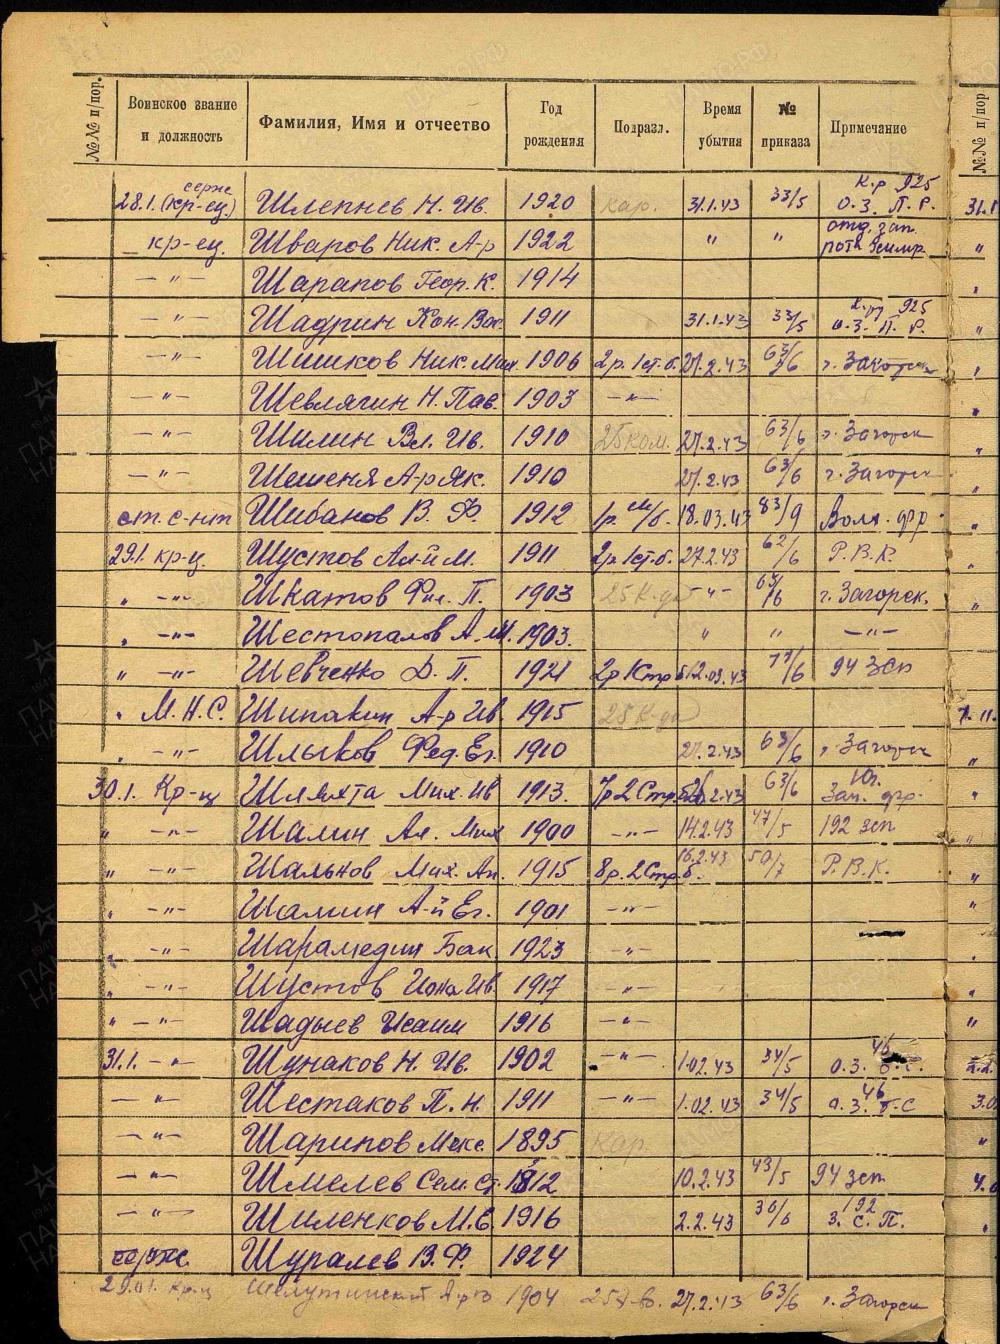 №№ п/пор. Воинское звание и должность Фамилия, Имя и отчество Год рождения Подразл. Время убытия № приказа Примечание №№ п/пор
28.1. серж (кр-ец.) Шлепнев Н. Ив. 1920 кар. 31.1.43 33/5 к.р 925 О.З. П.Р.
кр-ец. Шваров Ник. А-р 1922 " " отд. зап.
— " — Шарапов Геор. К. 1914
— " — Шадрин Кон. Вас. 1911 31.1.43 33/5 925 о.з. П. Р.
— " — Шишков Ник. Мих. 1906 2р. 1ст.б. 27.2.43 63/6 г. Загорск
— " — Шевлягин Н. Пав. 1903 — " —
— " — Шилин Вл. Ив. 1910 25 ком. 27.2.43 63/6 г. Загорск
— " — Шешеня А-р Як. 1910 27.2.43 63/6 г. Загорск
ст. с-нт Шибанов В. Ф. 1912 18.03.43 83/9 Волх. фр.
29.1. кр-ц. Шустов Ал-й М. 1911 2р. 1ст.б. 27.2.43 62/6 Р.В.К.
" — " — Шкатов Фил. П. 1903 25 К-да — " — 63/6 г. Загорск.
" — " — Шестопалов А. М. 1903. " " — " —
" — " — Шевченко Д. П. 1921 12.03.43 77/6 94 зсп
" М.Н.С. Шипакин А-р Ив. 1915 25 К-да
" — " — Шлыков Фед. Ег. 1910 27.2.43 63/6 г. Загорск
30.1. Кр-ц Шляхта Мих. Ив 1913. 7р 2 Стр.б. 63/6 Юг. Зап. фр.
" — " — Шалин Ал. Мих 1900 — " — 14.2.43 47/5 192 зсп
" — " — Шальнов Мих. Ан. 1915 8р. 2 Стр.б. 16.2.43 50/7 Р.В.К.
" — " — Шамин А-й Ег. 1901 — " —
" — " — Шарамедин Бак 1923 — " —
" — " — Шустов Иона Ив. 1917 — " —
" — " — Шадыев Исаим 1916 — " —
31.1. — " — Шунаков Н. Ив. 1902 — " — 1.02.43 34/5 о.з. 46 б.с.
— " — Шестаков П. Н. 1911 — " — 1.02.43 34/5 о.з. 46 б.с
— " — Шарипов Мекс. 1895 кар.
— " — Шмелев Сем. Ст. 10.2.43 43/5 94 зсп
— " — Шиленков М. Е. 1916 2.2.43 36/6 192 З.С.П.
серж. Шуралев В. Ф. 1924
29.01. кр-ц Шелутинский А-р 1904 27.2.43 63/6 г. Загорск